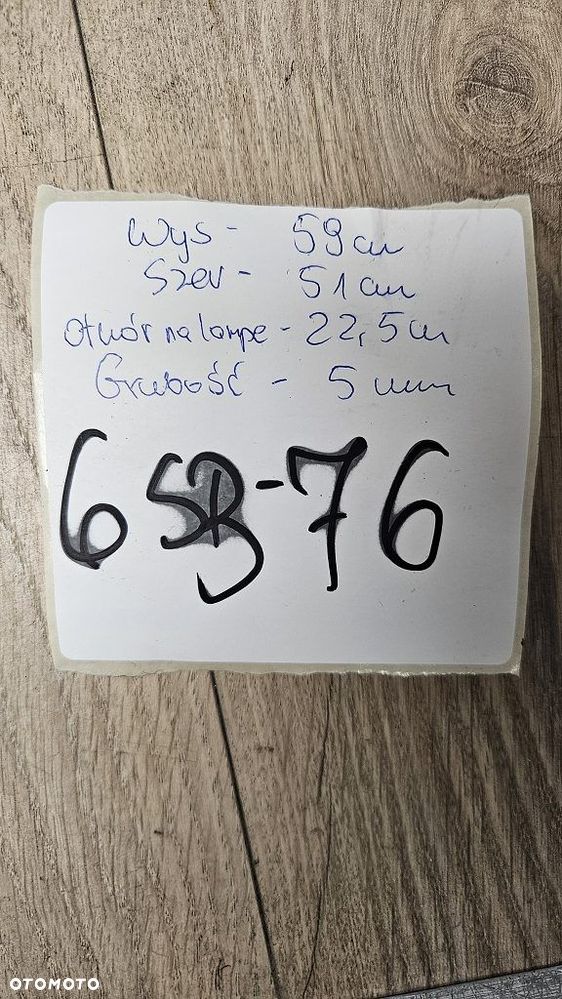 Wys - 59 cm
Szer - 51 cm
otwór na lampe - 22,5 cm
Grubość - 5 mm
6 SB-76
OTOMOTO